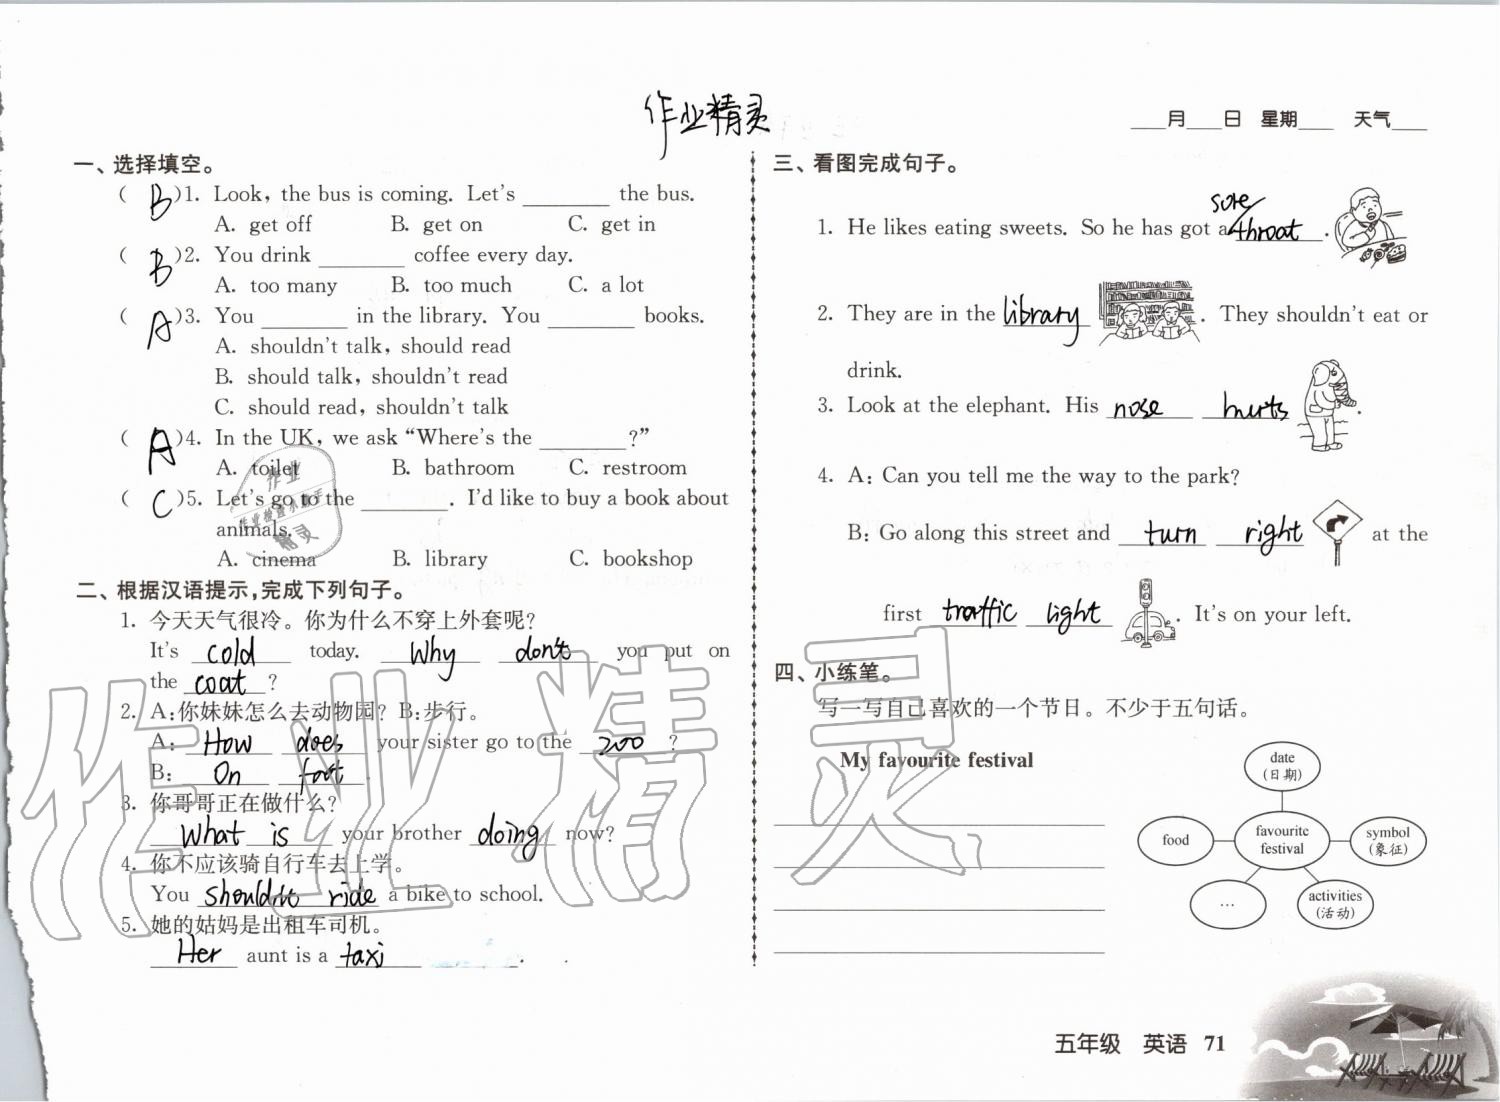 作业精灵
___月___日 星期___ 天气___
一、选择填空。
( B )1. Look, the bus is coming. Let's ________ the bus.
A. get off B. get on C. get in
( B )2. You drink ________ coffee every day.
A. too many B. too much C. a lot
( A )3. You ________ in the library. You ________ books.
A. shouldn't talk, should read
B. should talk, shouldn't read
C. should read, shouldn't talk
( A )4. In the UK, we ask “Where's the ________?”
A. toilet B. bathroom C. restroom
( C )5. Let's go to the ________. I'd like to buy a book about
animals.
A. cinema B. library C. bookshop
二、根据汉语提示,完成下列句子。
1. 今天天气很冷。你为什么不穿上外套呢?
It's cold today. Why don't you put on
the coat ?
2. A:你妹妹怎么去动物园? B:步行。
A: How does your sister go to the zoo ?
B: On foot .
3. 你哥哥正在做什么?
What is your brother doing now?
4. 你不应该骑自行车去上学。
You shouldn't ride a bike to school.
5. 她的姑妈是出租车司机。
Her aunt is a taxi ________.
三、看图完成句子。
1. He likes eating sweets. So he has got a sore throat .
2. They are in the library . They shouldn't eat or
drink.
3. Look at the elephant. His nose hurts .
4. A: Can you tell me the way to the park?
B: Go along this street and turn right at the
first traffic light . It's on your left.
四、小练笔。
写一写自己喜欢的一个节日。不少于五句话。
My favourite festival
date
(日期)
food
favourite
festival
symbol
(象征)
…
activities
(活动)
五年级 英语 71
作业
作业检查小助手
精灵
作业精灵